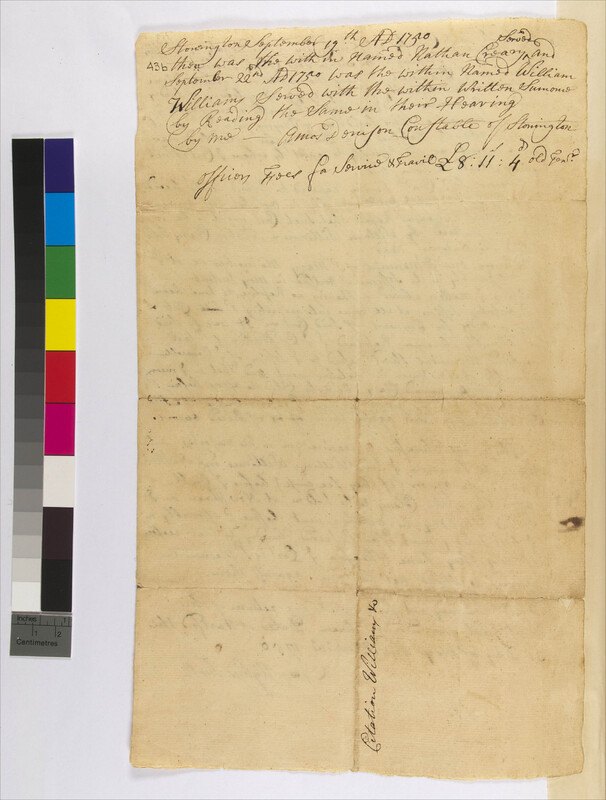 Stonington September 19th AD 1750
43b
then was the within Named Nathan Creary Served and
September 22nd AD 1750 was the within Named William
Williams Served with the within Written Sumons
by Reading the Same in their Hearing
by me — Amos Denison Constable of Stonington
officers Fees for Service & Travil £8 : 11s : 4d old
Citation Williams &c
Inches
1
Centimetres
1
2